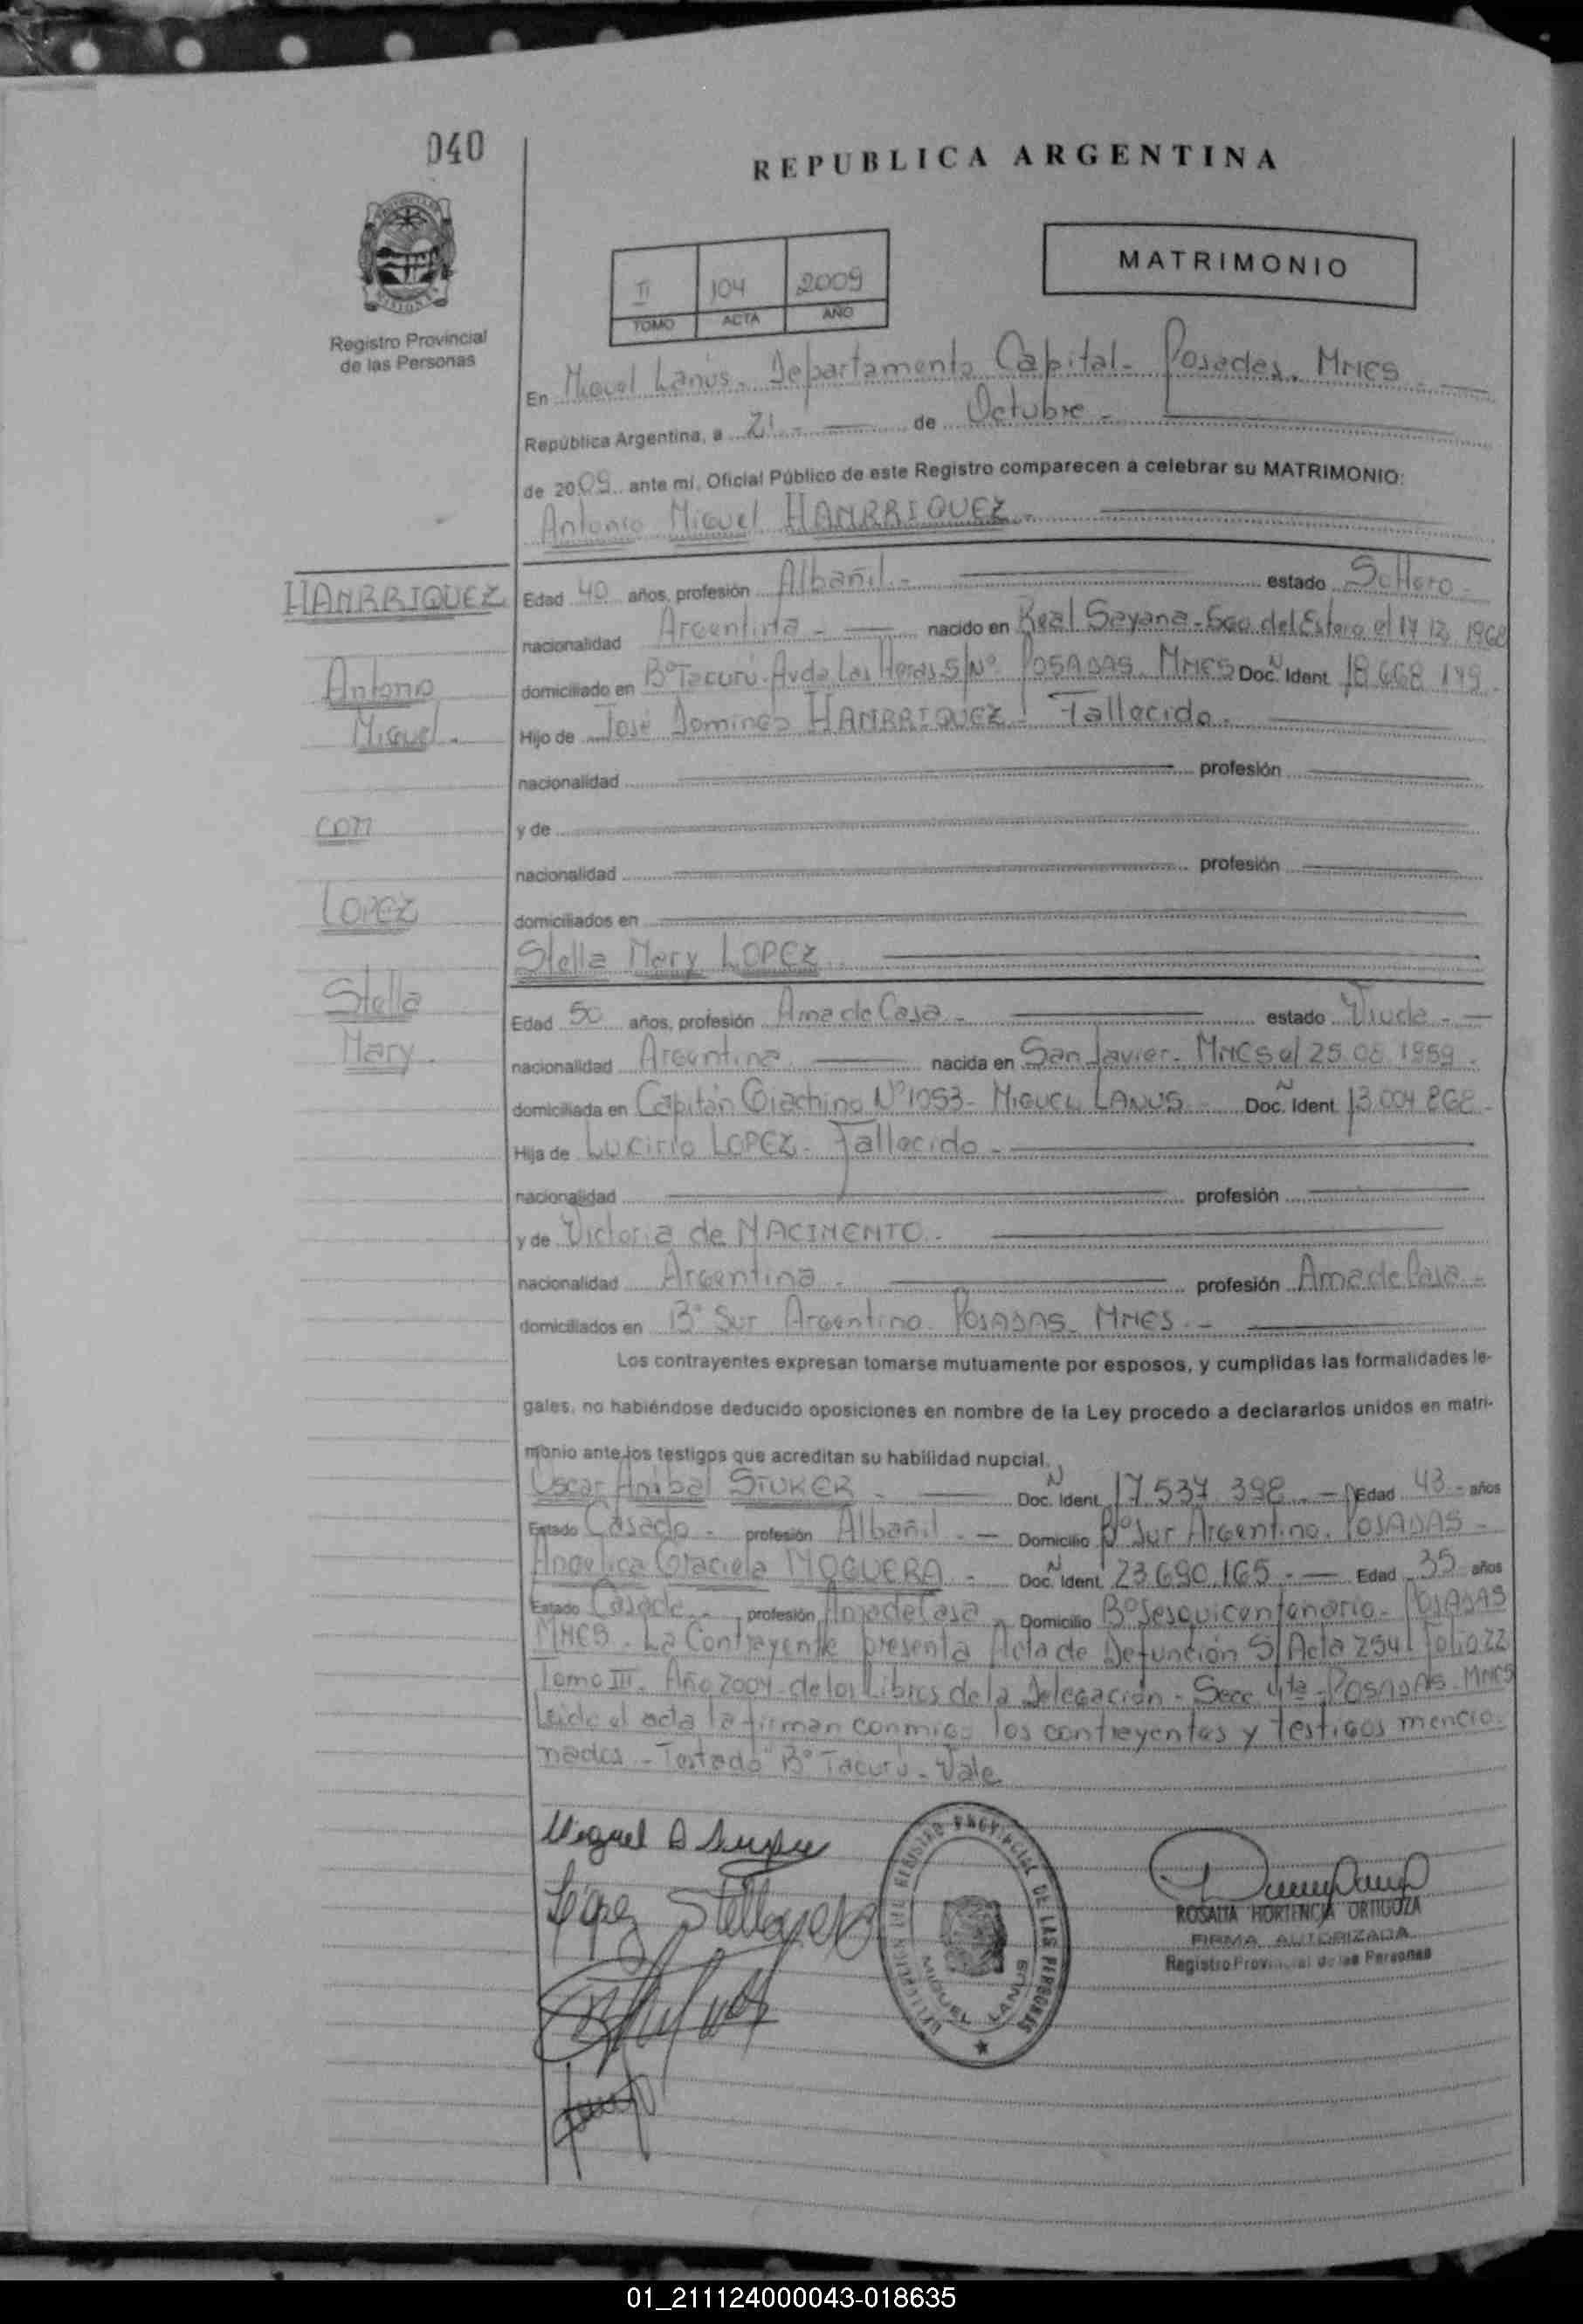 040
REPUBLICA ARGENTINA
MATRIMONIO
II 104 2009
TOMO ACTA AÑO
Registro Provincial
de las Personas
En Miguel Lanús - Departamento Capital - Posadas. MNES
República Argentina, a 21 - de Octubre -
de 2009 ante mí, Oficial Público de este Registro comparecen a celebrar su MATRIMONIO:
Antonio Miguel HANRRIQUEZ
HANRRIQUEZ
Antonio
Miguel.
con
LOPEZ
Stella
Mary.
Edad 40 años, profesión Albañil - estado Soltero -
nacionalidad Argentina - nacido en Real Sayana - Sgo del Estero el 17 12 1968
domiciliado en B° Tacurú - Avda Las Heras S/N° POSADAS. MNES Doc. N Ident. 18 668 179 -
Hijo de José Domingo HANRRIQUEZ - Fallecido.
nacionalidad profesión
y de
nacionalidad profesión
domiciliados en
Stella Mary LOPEZ
Edad 50 años, profesión Ama de Casa - estado Viuda -
nacionalidad Argentina nacida en San Javier - MNES el 25.08.1959 -
domiciliada en Capitán Giachino N° 1053 - MIGUEL LANUS - Doc. N Ident. 13.004 868 -
Hija de LOPEZ - Fallecido -
nacionalidad profesión
y de Victoria de NACIMENTO -
nacionalidad Argentina - profesión Ama de Casa -
domiciliados en B° Sur Argentino. POSADAS - MNES. -
Los contrayentes expresan tomarse mutuamente por esposos, y cumplidas las formalidades le-
gales, no habiéndose deducido oposiciones en nombre de la Ley procedo a declararlos unidos en matri-
monio ante los testigos que acreditan su habilidad nupcial.
Oscar Anibal STUKER - Doc. N Ident. 17.537 398 - Edad 43 - años
Estado Casado - profesión Albañil - Domicilio B° Sur Argentino. POSADAS -
Angelica Graciela NOGUERA - Doc. N Ident. 23.690.165 - Edad 35 años
Estado Casada - profesión Ama de Casa Domicilio B° Sesquicentenario - POSADAS
MNES - La Contrayente presenta Acta de Defunción S/ Acta 254 Folio 22
Tomo III - Año 2004 - de los Libros de la Delegación - Secc 4ta - POSADAS - MNES
Leída el acta la firman conmigo los contrayentes y testigos mencio-
nados - Testado B° Tacurú - Vale
Miguel A
López Stella
DELEGACION DEL REGISTRO PROVINCIAL DE LAS PERSONAS
MIGUEL LANUS
ROSALIA HORTENCIA ORTIGOZA
FIRMA AUTORIZADA
Registro Provincial de las Personas
01_211124000043-018635